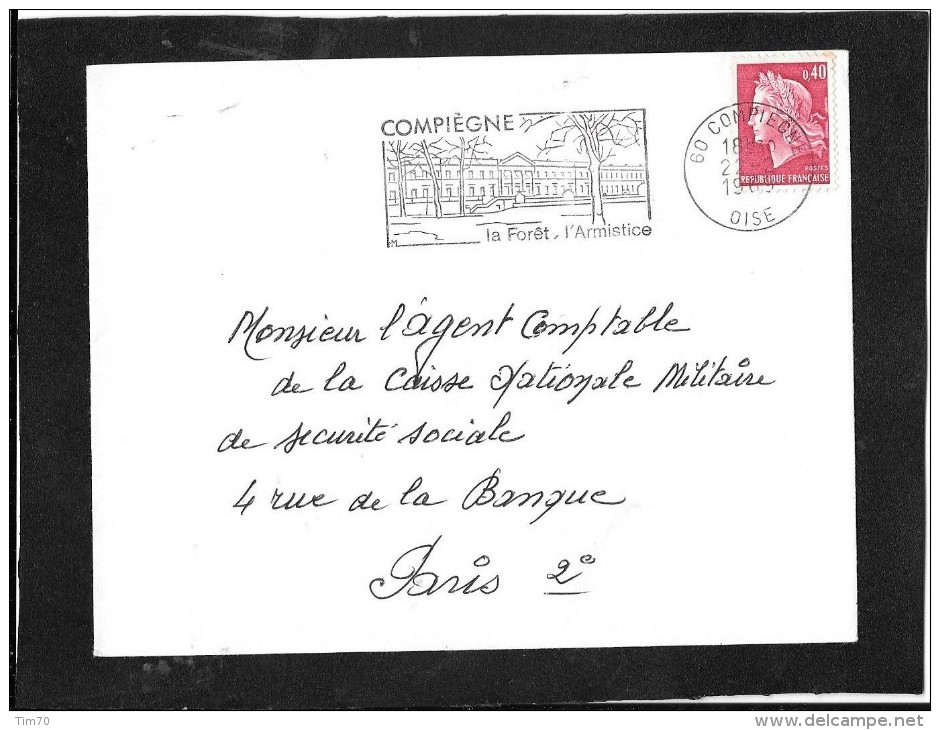 COMPIÈGNE
la Forêt, l'Armistice
0,40
POSTES
REPUBLIQUE FRANÇAISE
60 COMPIEGNE
18H
22
19
OISE
Monsieur l'agent Comptable
de la Caisse Nationale Militaire
de securité sociale
4 rue de la Banque
Paris 2e
Tim70
delcampe.net